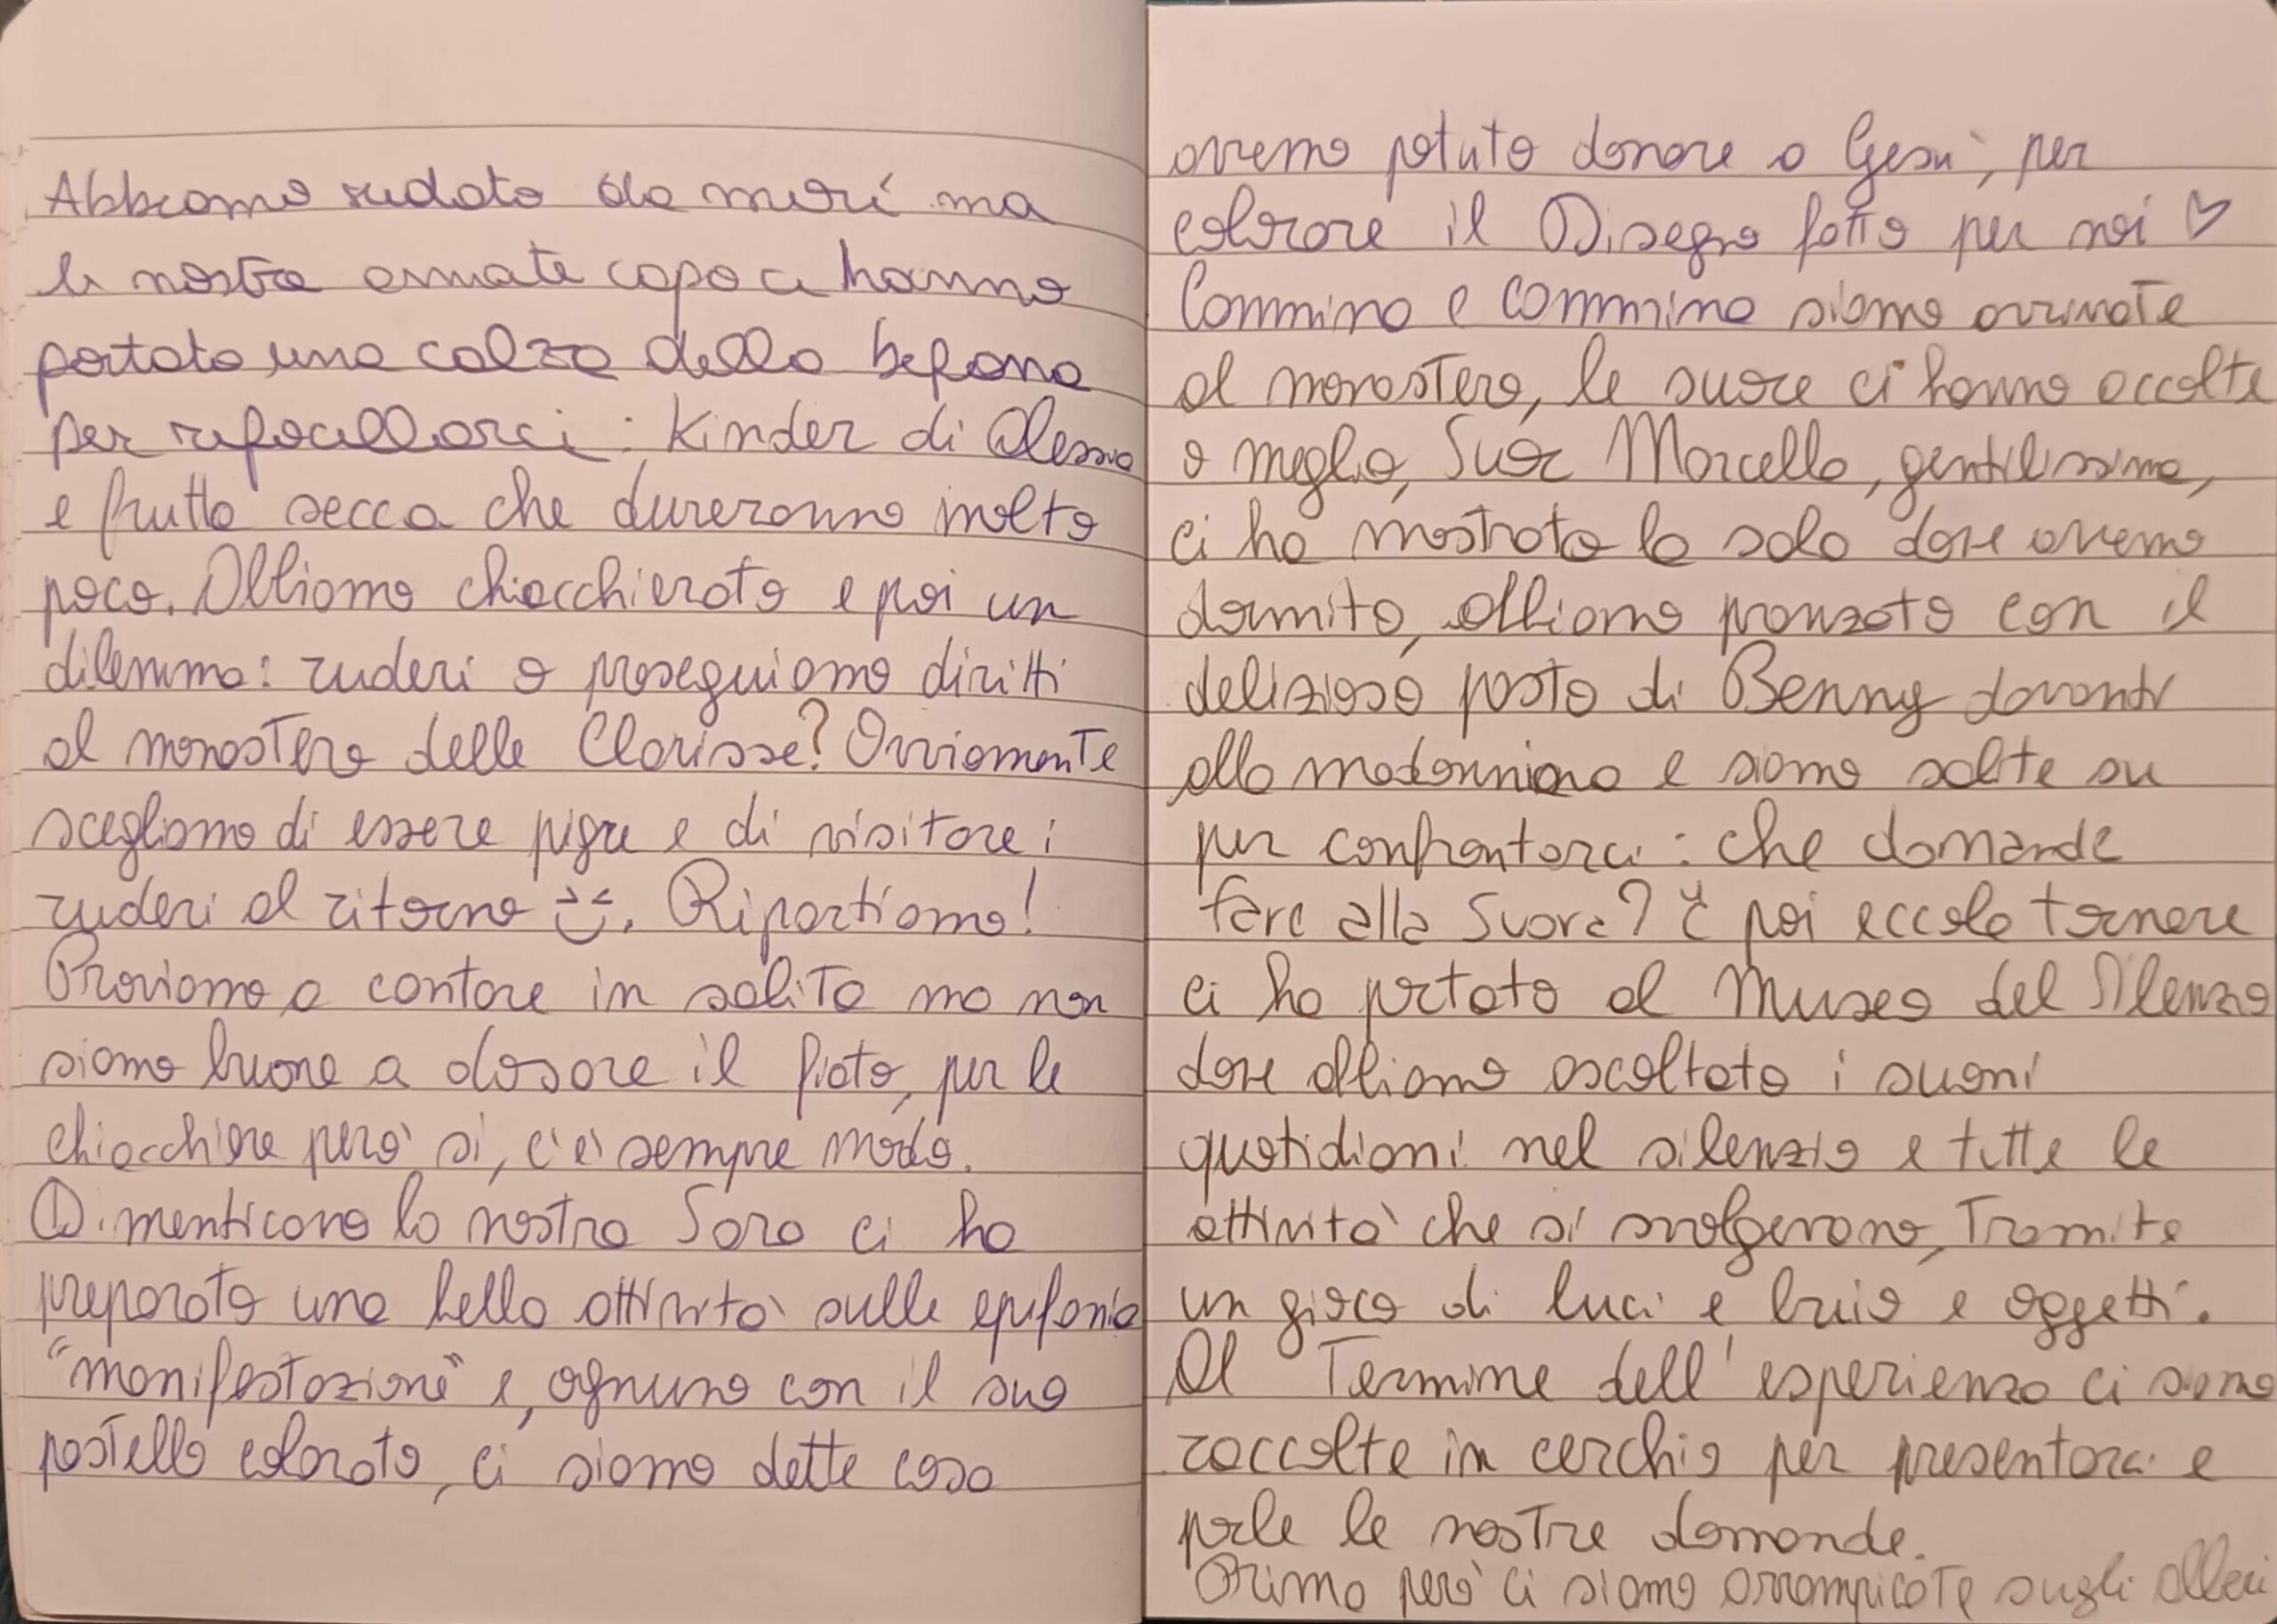 Abbiamo sudato da morí ma
le nostra amate capo ci hanno
portato una calza della befana
per rifocillarci: Kinder di Alessia
e frutta secca che dureranno molto
poco. Abbiamo chiacchierato e poi un
dilemma: ruderi o proseguiamo diritti
al monastero delle Clarisse? Ovviamente
scegliamo di essere pigre e di visitare i
ruderi al ritorno. Ripartiamo!
Proviamo a cantare in salita ma non
siamo buone a dosare il fiato, per le
chiacchiere però si, c'è sempre modo.
Dimenticavo la nostra Sara ci ha
preparato una bella attività sulle epifania
"manifestazione" e, ognuno con il suo
pastello colorato, ci siamo dette cosa
avremo potuto donare a Gesù, per
colorare il Disegno fatto per noi ♡
Cammina e cammina siamo arrivate
al monastero, le suore ci hanno accolte
o meglio, Suor Marcella, gentilissima,
ci ha mostrato la sala dove avremo
dormito, abbiamo pranzato con il
delizioso pasto di Benny davanti
alla madonnina e siamo salite su
per confrontarci: che domande
fare alla Suora? E poi eccola tornare
ci ha portato al Museo del Silenzio
dove abbiamo ascoltato i suoni
quotidiani nel silenzio e tutte le
attività che si svolgevano, Tramite
un gioco di luci e buio e oggetti.
Al Termine dell'esperienza ci siamo
raccolte in cerchio per presentarci e
porle le nostre domande.
Prima però ci siamo arrampicate sugli alberi